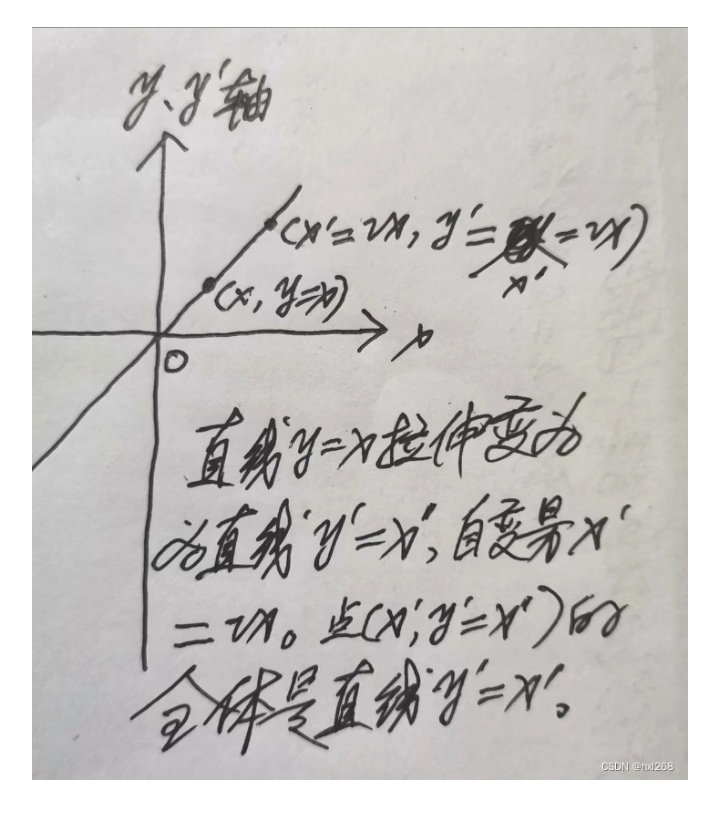 y、y′轴
(x′=2x, y′=x′=2x)
(x, y=x)
x
O
直线y=x拉伸变为
为直线y′=x′,自变量x′
=2x。点(x′,y′=x′)的
全体是直线y′=x′。
CSDN @hxl268